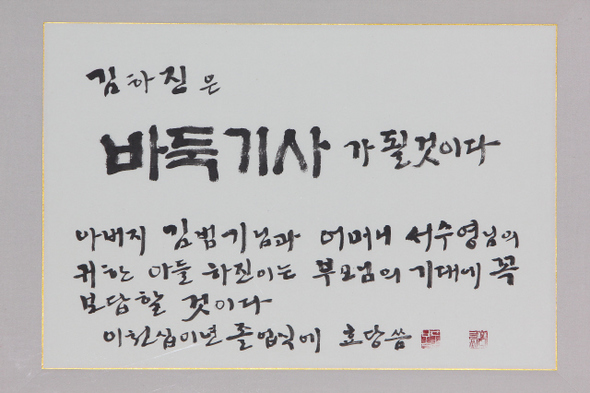 김하진은
바둑기사가 될것이다
아버지 김범기님과 어머니 서수영님의
귀한 아들 하진이는 부모님의 기대에 꼭
보답할 것이다
이천십이년 졸업식에 효당씀